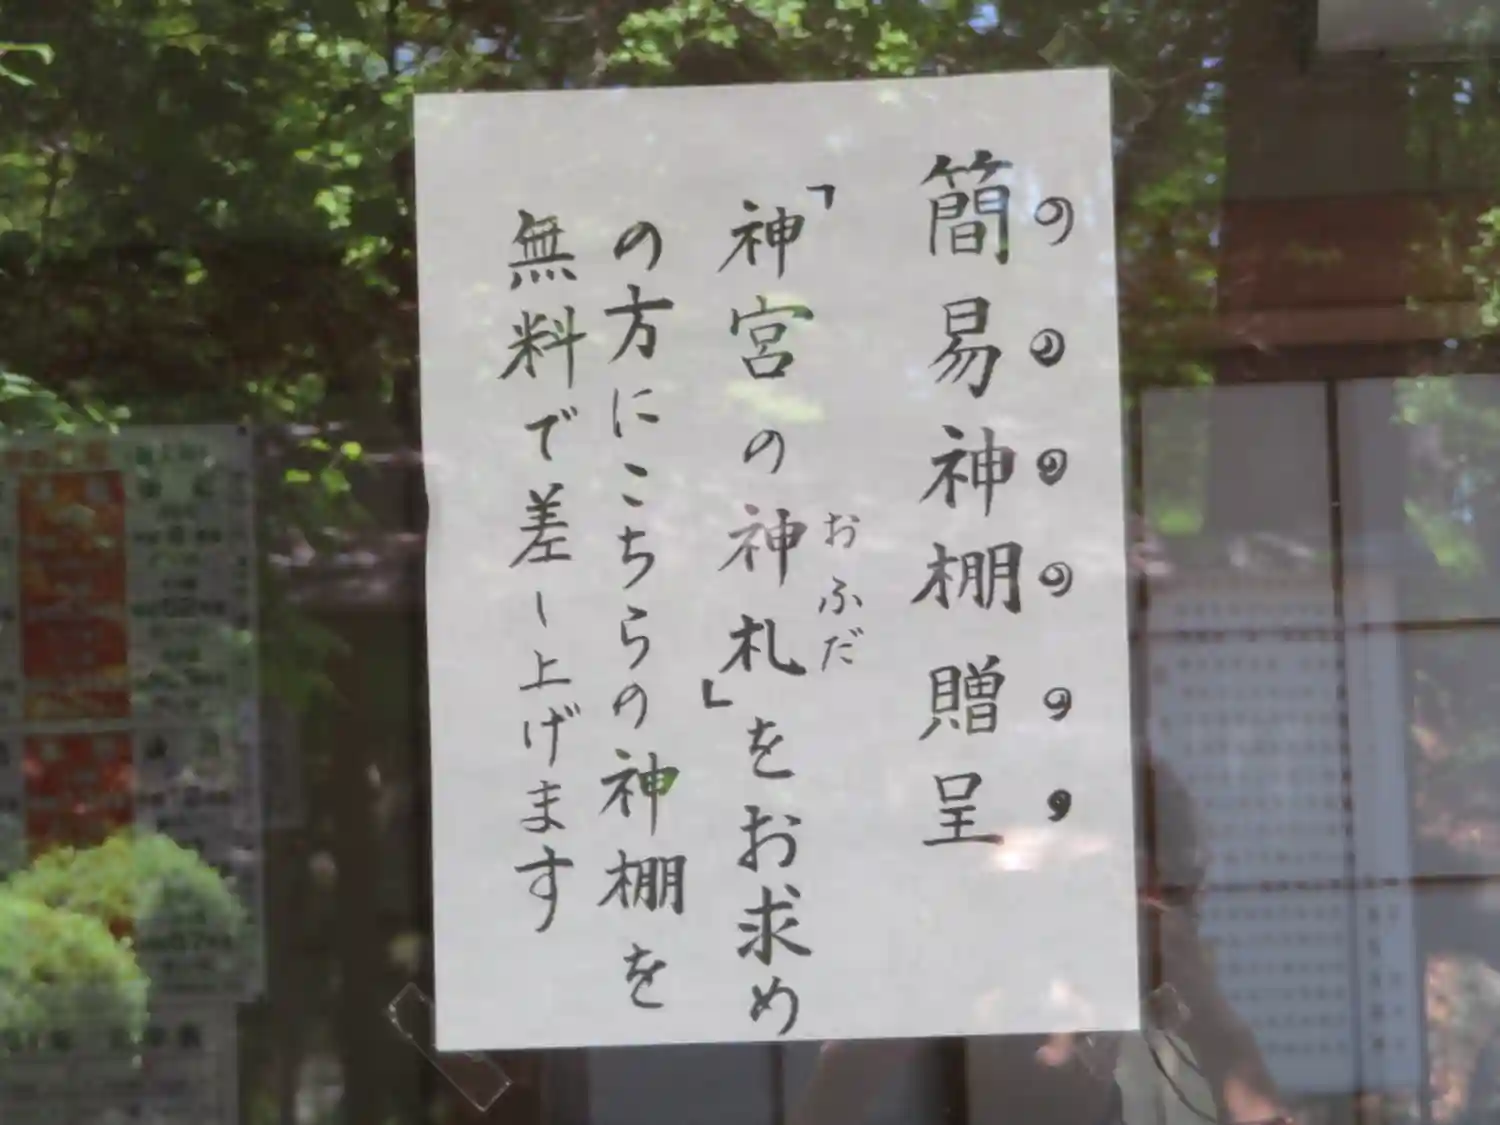 簡易神棚贈呈
「神宮の神札」をお求め
おふだ
の方にこちらの神棚を
無料で差し上げます